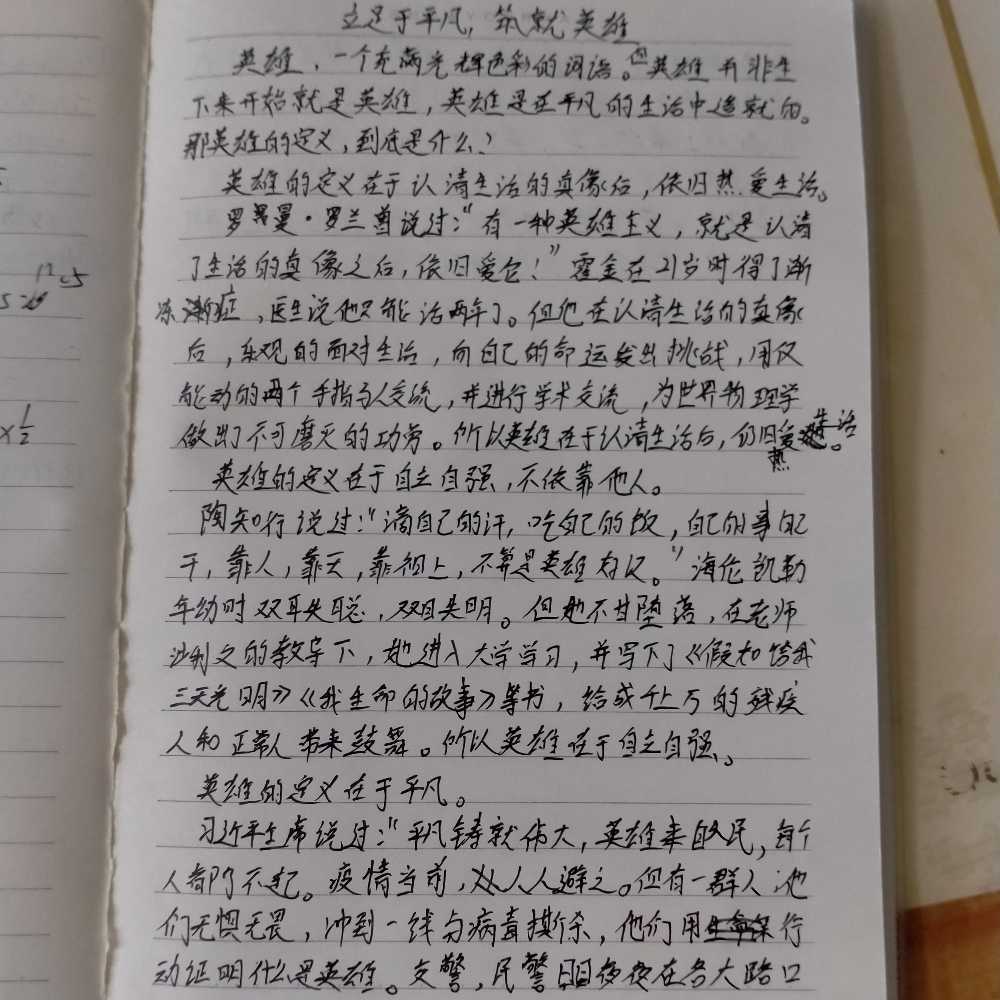 立足于平凡，筑就英雄
英雄，一个充满光辉色彩的词语。但英雄并非生
下来开始就是英雄，英雄是在平凡的生活中造就的。
那英雄的定义，到底是什么？
英雄的定义在于认清生活的真像后，依旧热爱生活。
罗曼·罗兰曾说过：“有一种英雄主义，就是认清
了生活的真像之后，依旧爱它！”霍金在21岁时得了渐
冻症，医生说他只能活两年了。但他在认清生活的真像
后，乐观的面对生活，向自己的命运发出挑战，用仅
能动的两个手指与人交流，并进行学术交流，为世界物理学
做出了不可磨灭的功劳。所以英雄在于认清生活后，仍旧热爱生活。
英雄的定义在于自立自强，不依靠他人。
陶知行说过：“滴自己的汗，吃自己的饭，自己的事自己
干，靠人，靠天，靠祖上，不算是英雄好汉。”海伦凯勒
年幼时双耳失聪，双目失明。但她不甘堕落，在老师
沙利文的教导下，她进入大学学习，并写下了《假如给我
三天光明》《我生命的故事》等书，给成千上万的残疾
人和正常人带来鼓舞。所以英雄在于自立自强。
英雄的定义在于平凡。
习近平主席说过：“平凡铸就伟大，英雄来自人民，每个
人都了不起。疫情当前，人人避之。但有一群人，他
们无惧无畏，冲到一线与病毒撕杀，他们用行
动证明什么是英雄。交警，民警日日夜夜在各大路口
12.5
x 1/2